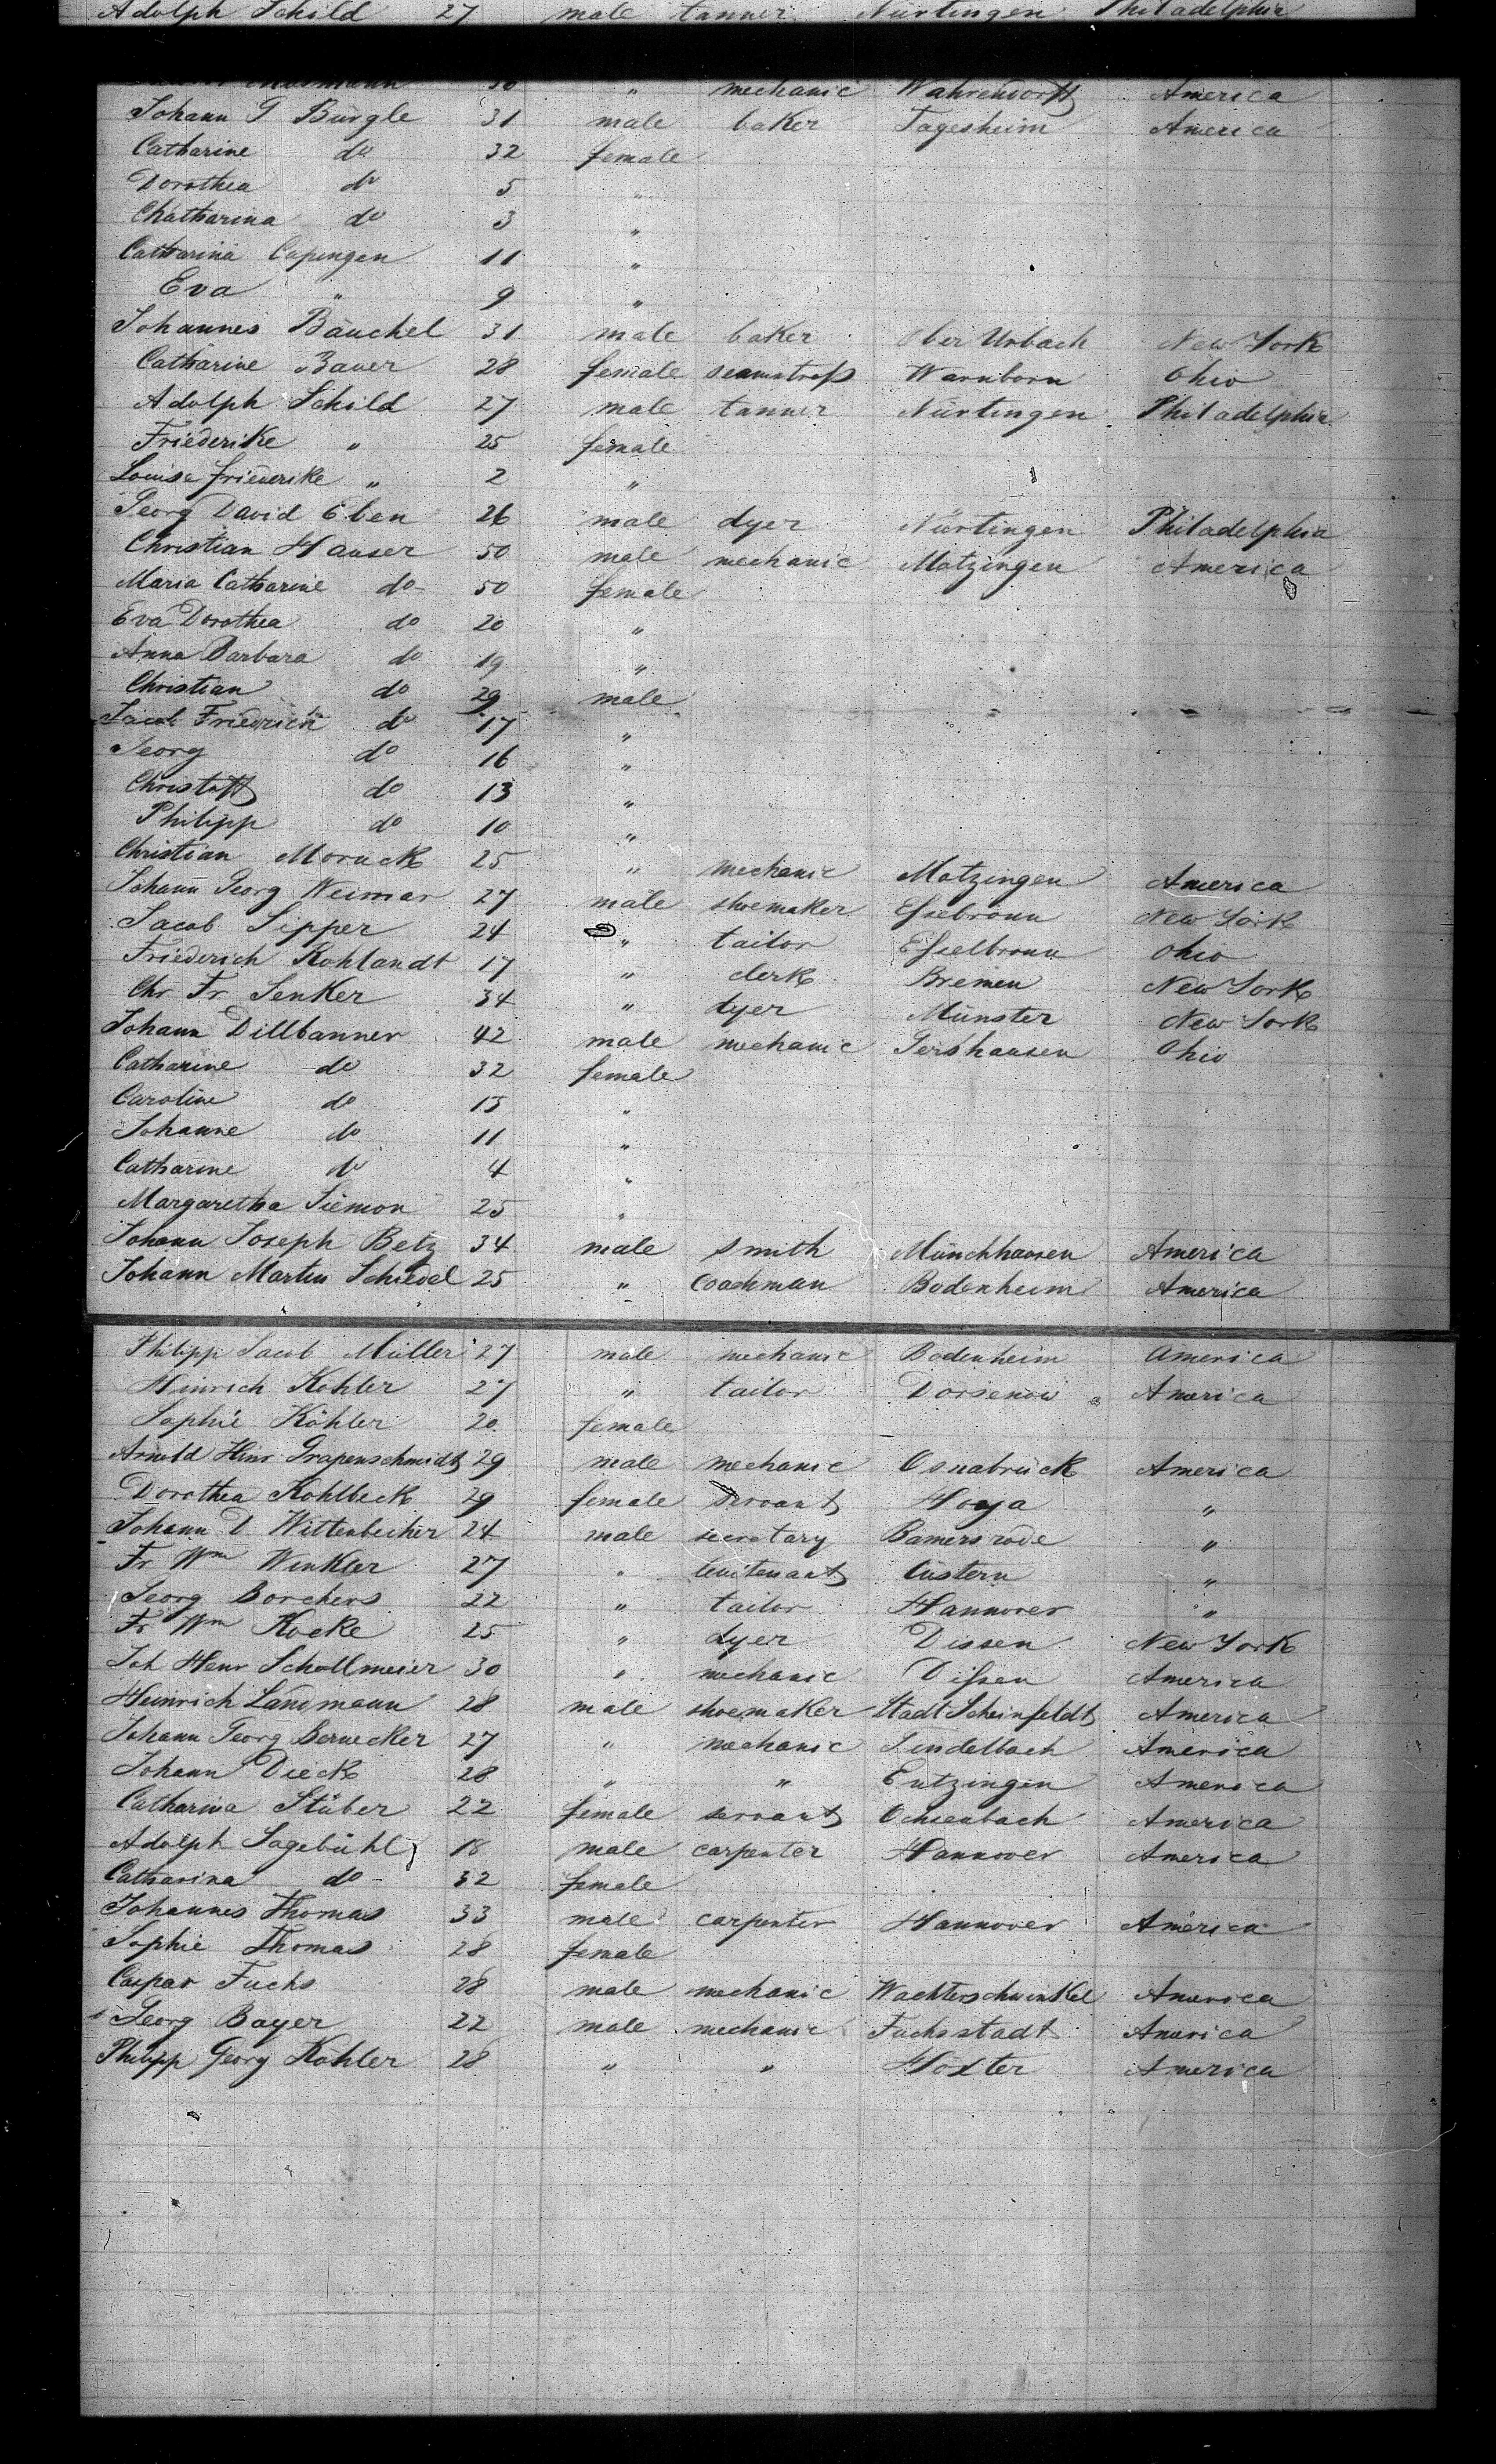 Adolph Schild 27 male tanner Nürtingen Philadelphia
30 " mechanic Wahrendorff America
Johann G Bürgle 31 male baker Tagesheim America
Catharine do 32 female
Dorothea do 5 "
Chatharina do 3 "
Catharina Capengen 11 "
Eva " 9 "
Johannes Bäuchel 31 male baker Ober Urbach New York
Catharine Bauer 28 female seamstress Warnborn Ohio
Adolph Schild 27 male tanner Nürtingen Philadelphia
Friederike " 25 female
Louise friederike " 2 "
Georg David Eben 26 male dyer Nürtingen Philadelphia
Christian Hauser 50 male mechanic Motzingen America
Maria Catharine do 50 female
Eva Dorothea do 20 "
Anna Barbara do 19 "
Christian do 29 male
Jacob Friedrich do 17 "
Georg do 16 "
Christoff do 13 "
Philipp do 10 "
Christian Moruck 25 " mechanic Motzingen America
Johann Georg Weimar 27 male shoemaker Essebronn New York
Jacob Sipper 24 " tailor Esselbronn Ohio
Friederich Rohlandt 17 " clerk Bremen New York
Chr Fr Senker 34 " dyer Münster New York
Johann Dillbanner 42 male mechanic Gershausen Ohio
Catharine do 32 female
Caroline do 13 "
Johanne do 11 "
Catharine do 4 "
Margaretha Siemon 25 "
Johann Joseph Betz 34 male smith Münchhausen America
Johann Martin Schiedel 25 " Coachman Bodenheim America
Philipp Jacob Müller 27 male mechanic Bodenheim America
Heinrich Kohler 27 " tailor Dorsenow America
Sophie Köhler 20 female
Arnold Heinr Grapenschmidt 29 male mechanic Osnabrück America
Dorothea Kohlbeck 29 female servant Hoya "
Johann D Wittenbecher 24 male secretary Bamersrode "
Fr Wm Winkler 27 " leuitenant Cüstern "
Georg Borchers 22 " tailor Hannover "
Fr Wm Kocke 25 " dyer Dissen New York
Joh Henr Schollmeier 30 " mechanic Dissen America
Heinrich Landmann 28 male shoemaker Stadt Scheinfeldt America
Johann Georg Bernecker 27 " mechanic Lindelbach America
Johann Dieck 28 " " Eutzingen America
Catharina Stüber 22 female servant Ochsenbach America
Adolph Sagebühl 18 male carpenter Hannover America
Catharina do 32 female
Johannes Thomas 33 male carpenter Hannover America
Sophie Thomas 28 female
Caspar Fuchs 28 male mechanic Wachterschwinkel America
Georg Bayer 22 male mechanic Fuchsstadt America
Philipp Georg Köhler 28 " " Höxter America